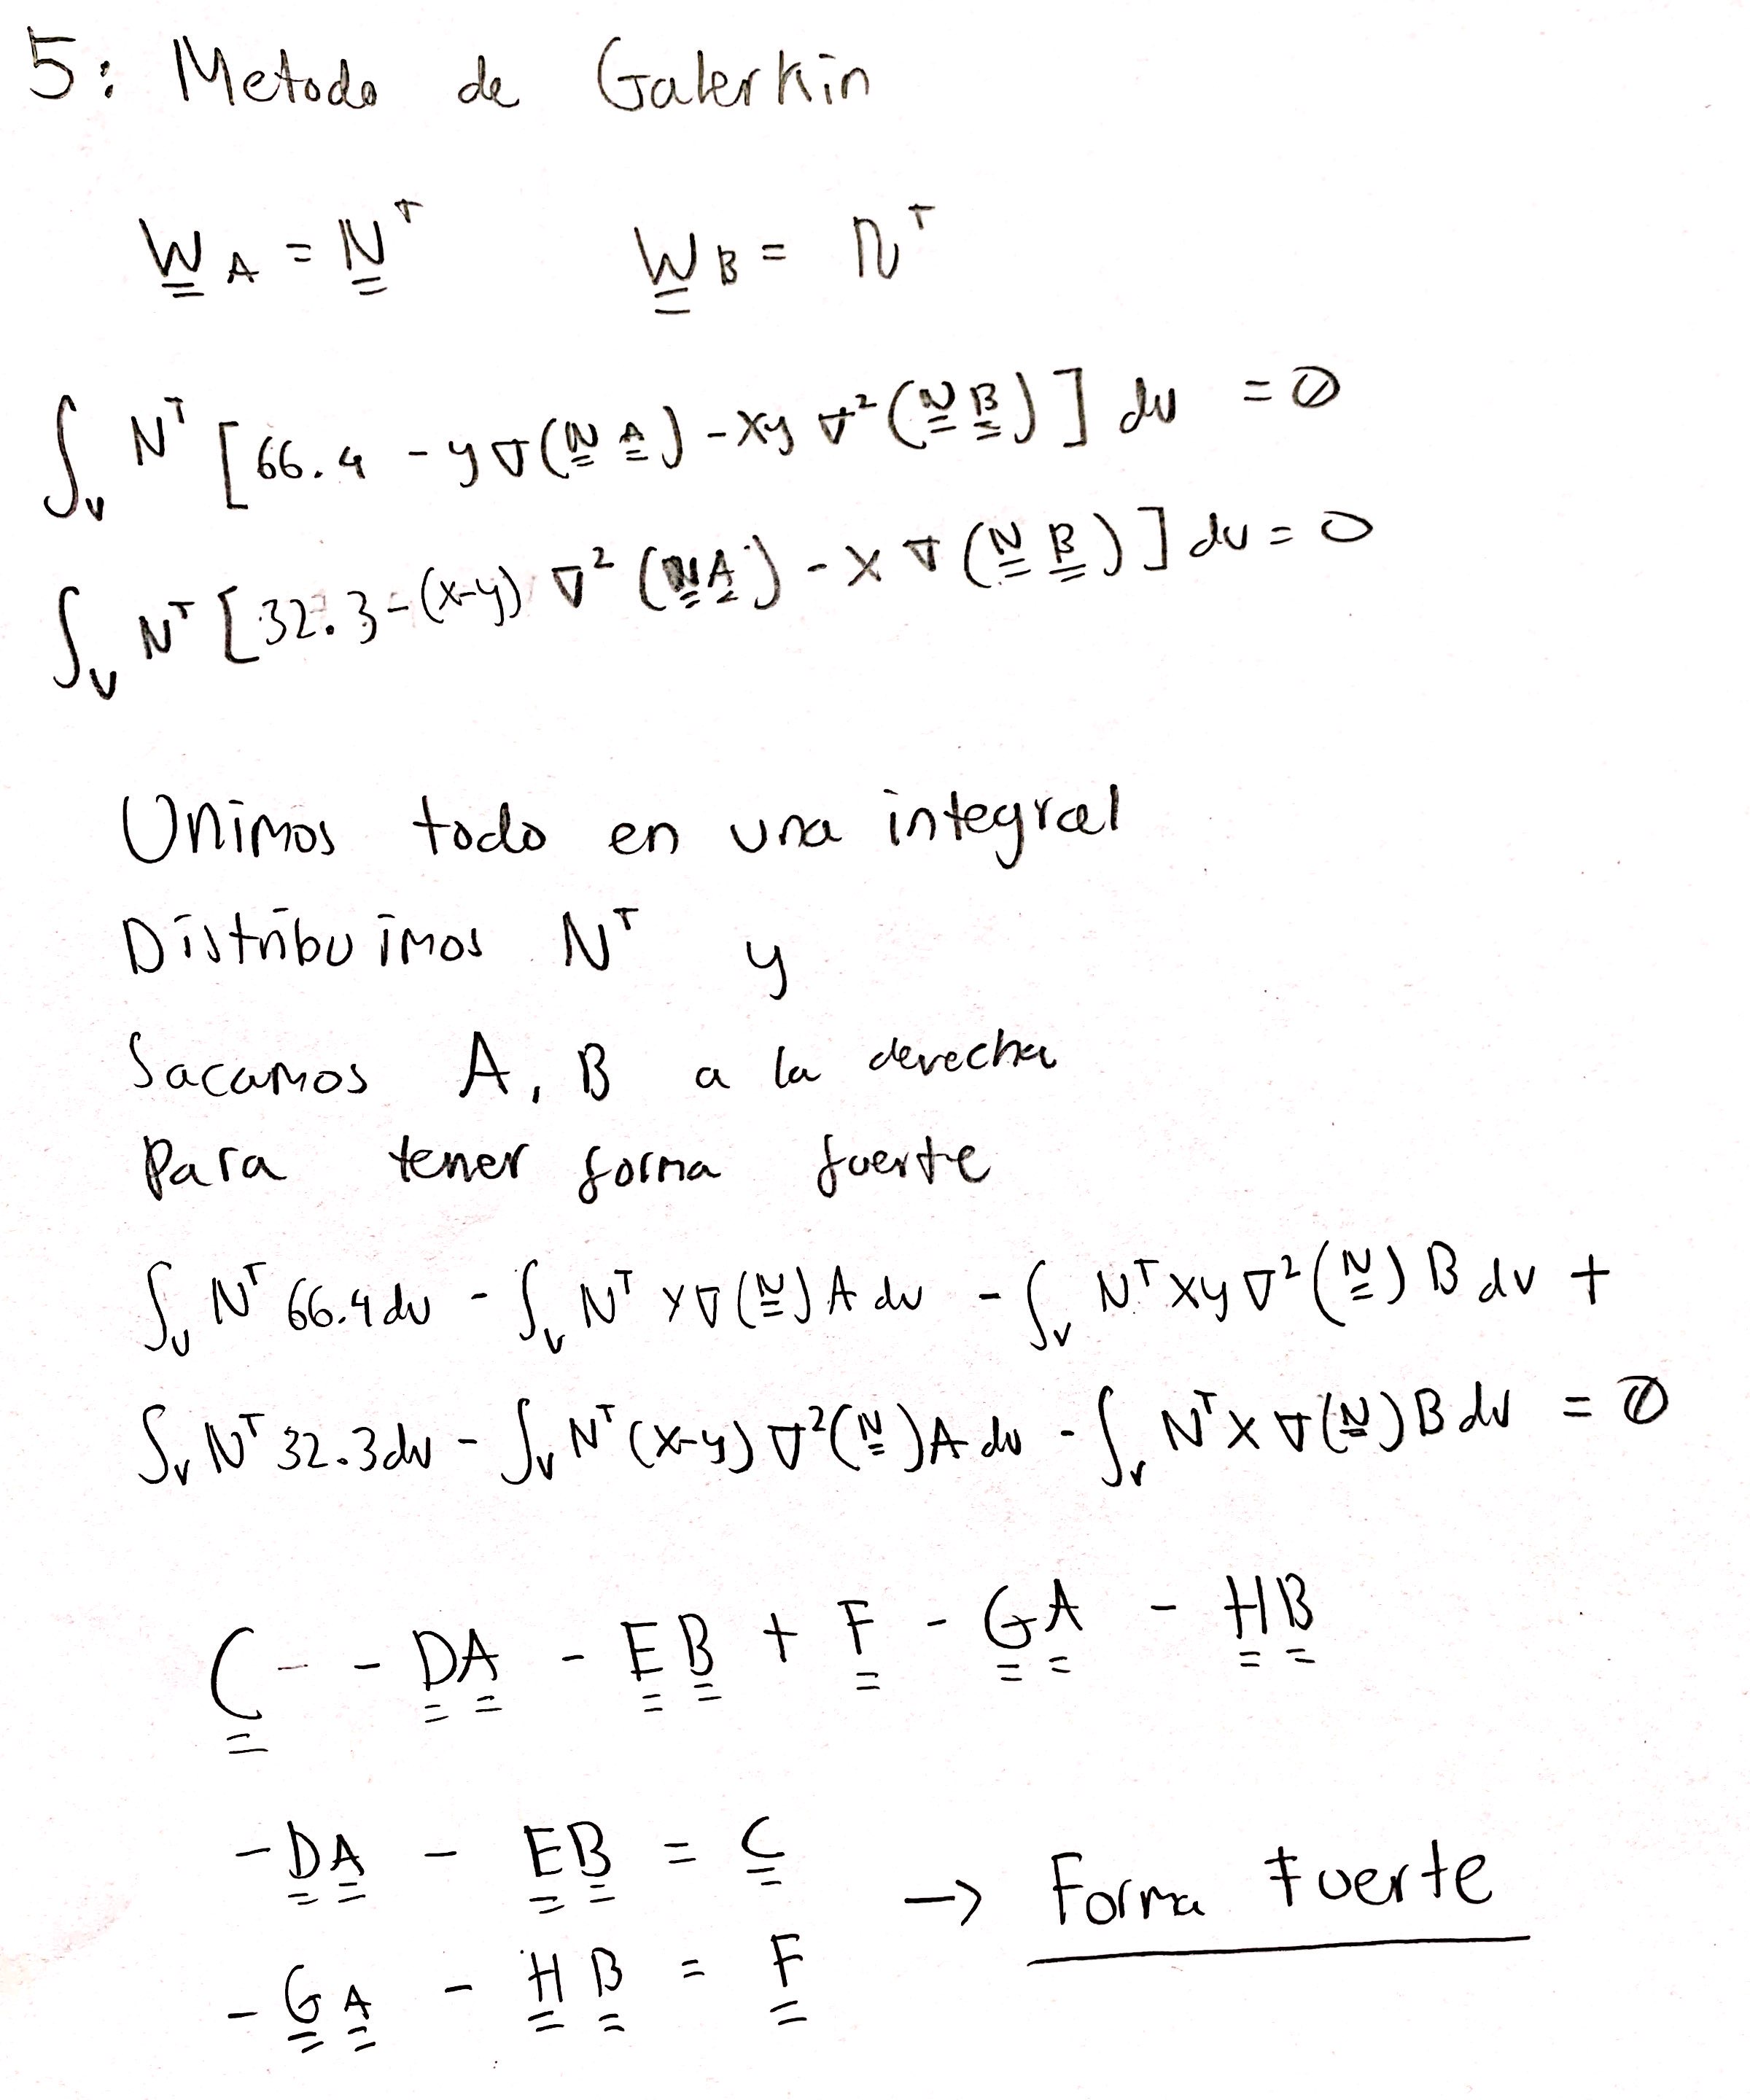 5: Metodo de Galerkin
W_A = N^T W_B = N^T
∫_v N^T [66.4 - y∇(N A) - xy ∇²(N B)] dv = 0
∫_v N^T [32.3 - (x-y) ∇² (N A) - x ∇ (N B)] dv = 0
Unimos todo en una integral
Distribuimos N^T y
Sacamos A, B a la derecha
Para tener forma fuerte
∫_v N^T 66.4 dv - ∫_v N^T y∇(N) A dv - ∫_v N^T xy ∇²(N) B dv +
∫_v N^T 32.3 dv - ∫_v N^T (x-y) ∇²(N) A dv - ∫_v N^T x ∇(N) B dv = 0
C - - DA - EB + F - GA - HB
-DA - EB = C
→ Forma Fuerte
-GA - HB = F